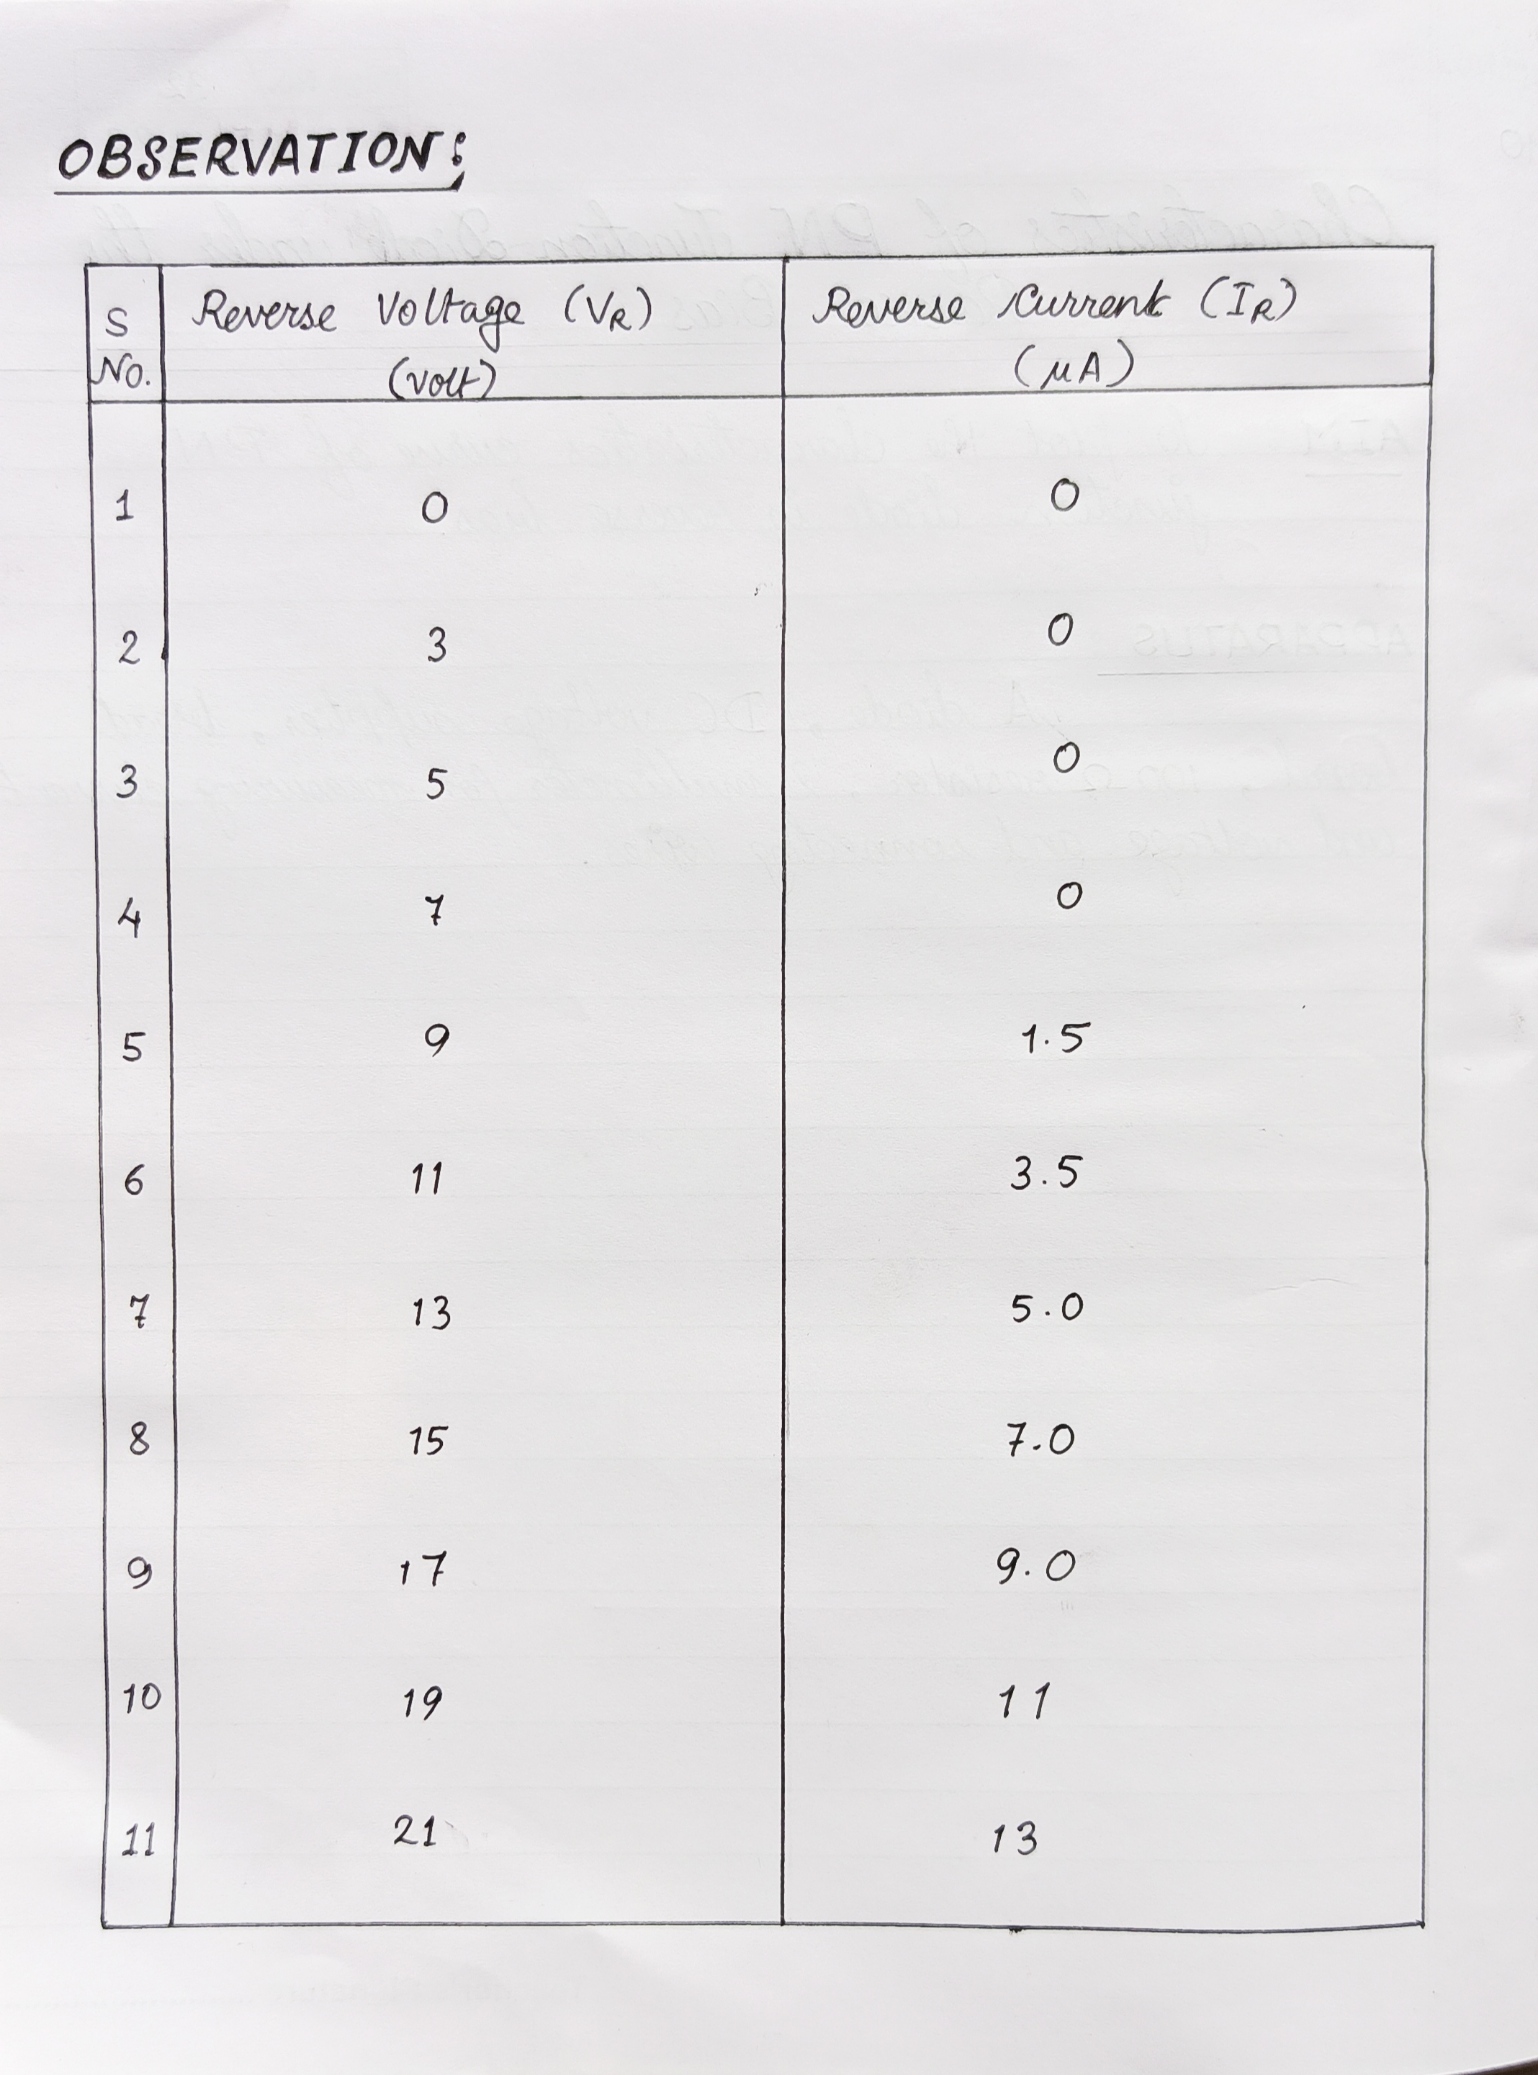 OBSERVATION:
S No. Reverse Voltage (VR) (volt) Reverse Current (IR) (μA)
1 0 0
2 3 0
3 5 0
4 7 0
5 9 1.5
6 11 3.5
7 13 5.0
8 15 7.0
9 17 9.0
10 19 11
11 21 13